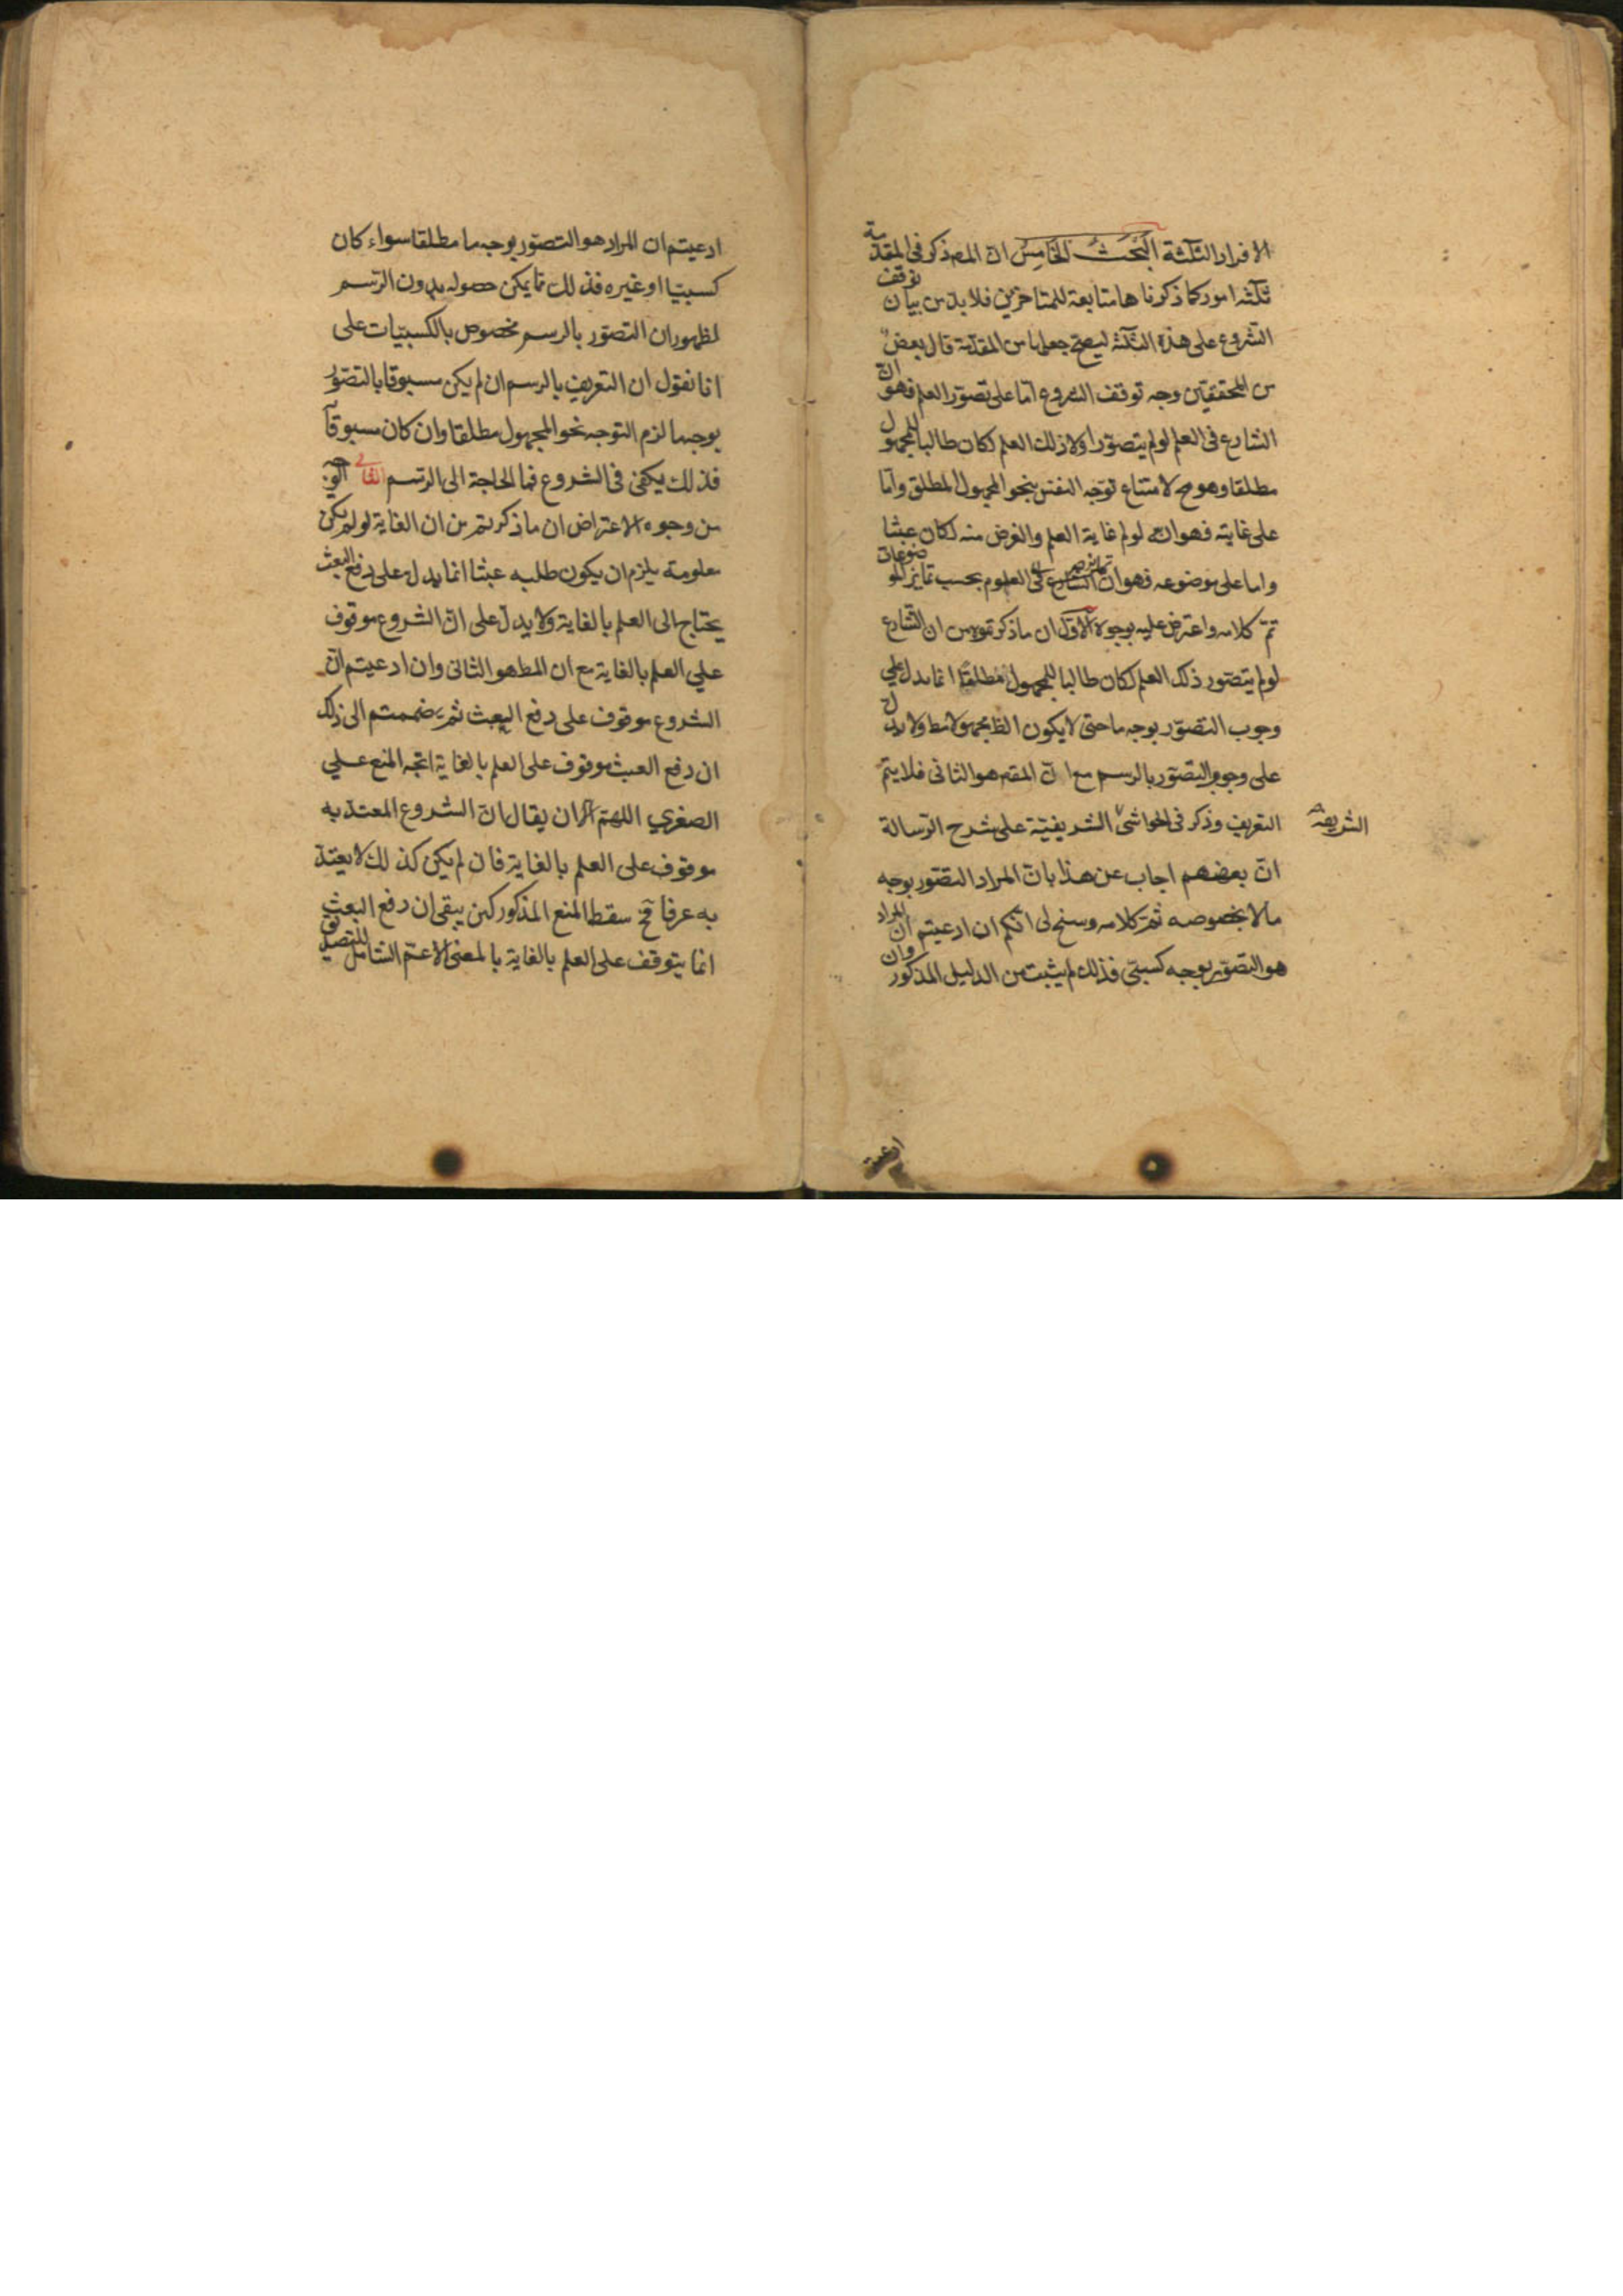 الافراد الثلثة البَحَثُ الخَامِسُ انّ المصـ ذكر فى المقدّمة
ثلثة امور كما ذكرنا ها متابعة للمتاخرين فلا بدّ من بيان توقف
الشروع على هذه الثلثة ليصحّ جعلها من المقدّمة قال بعضٌ
من المحققين وجه توقف الشروع امّا على تصوّر العلم فهو انّ
الشارع فى العلم لو لم يتصوّر اولا ذلك العلم لكان طالبا للمجهول
مطلقا وهو مح لامتناع توجّه النفس نحو المجهول المطلق وامّا
على غايته فهو انه لو لم غاية العلم والغرض منه لكان عبثا
واما على موضوعه فهو ان تمايز العلوم بحسب تمايز الموضوعات
تمّ كلامه واعترض عليه بوجوه الاوّل ان ما ذكرتموه من ان الشارع
لو لم يتصور ذلك العلم لكان طالبا للمجهول مطلقًا انما يدل على
وجوب التصوّر بوجه ما حتى لا يكون الط مجهولا مط ولا يدلّ
على وجوب التصوّر بالرسم مع انّ المقصـ هو الثانى فلا يتمّ
التقريب وذكر فى الحواشى الشريفيّة على شرح الرسالة
الشريفة
انّ بعضهم اجاب عن هذا بانّ المراد التصّور بوجه
ما لا بخصوصه ثمّ كلامه وسنح لى انّكم ان ادعيتم انّ المراد
هو التصوّر بوجه كسبىّ فذلك لم يثبت من الدليل المذكور وان
ادعيتم
ادعيتم ان المراد هو التصوّر بوجه ما مطلقا سواء كان
كسبيّا او غيره فذلك ممّا يمكن حصوله بدون الرّسم
لظهور ان التصوّر بالرسم مخصوص بالكسبيّات على
انا نقول ان التعريف بالرسم ان لم يكن مسبوقا بالتصوّر
بوجه ما لزم التوجه نحو المجهول مطلقا وان كان مسبوقاً
فذلك يكفى فى الشروع فما الحاجة الى الرّسم الثانى الوجه
من وجوه الاعتراض ان ما ذكرتم من ان الغاية لو لم يكن
معلومة يلزم ان يكون طلبه عبثا انما يدل على دفع العبث
يحتاج الى العلم بالغاية ولا يدلّ على انّ الشروع موقوف
على العلم بالغاية مع ان المط هو الثانى وان ادعيتم انّ
الشروع موقوف على دفع العبث ثمّ ضممتم الى ذلك
ان دفع العبث موقوف على العلم بالغاية اتجه المنع على
الصغرى اللهمّ الا ان يقال انّ الشروع المعتدّ به
موقوف على العلم بالغاية فان لم يكن كذلك لا يعتدّ
به عرفا فح سقط المنع المذكور لكن يبقى ان دفع العبث
انما يتوقف على العلم بالغاية بالمعنى الاعمّ الشامل للتصديق